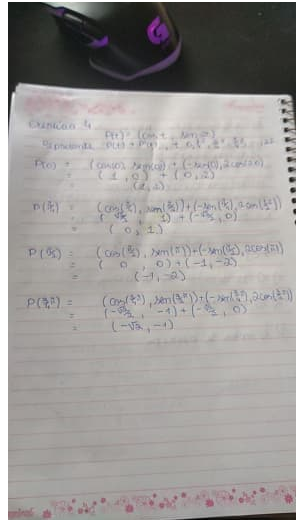 Exercício 4
P(t) = (cos t, sen 2t)
Represente P(t) + P'(t), t = 0, π/4, π/2, 3π/4, ..., 2π
P(0) = (cos(0), sen(0)) + (-sen(0), 2cos(2·0))
= (1, 0) + (0, 2)
= (1, 2)
P(π/4) = (cos(π/4), sen(π/2)) + (-sen(π/4), 2cos(π/2))
= (√2/2, 1) + (-√2/2, 0)
= (0, 1)
P(π/2) = (cos(π/2), sen(π)) + (-sen(π/2), 2cos(π))
= (0, 0) + (-1, -2)
= (-1, -2)
P(3/4π) = (cos(3/4π), sen(3/2π)) + (-sen(3/4π), 2cos(3/2π))
= (-√2/2, -1) + (-√2/2, 0)
= (-√2, -1)